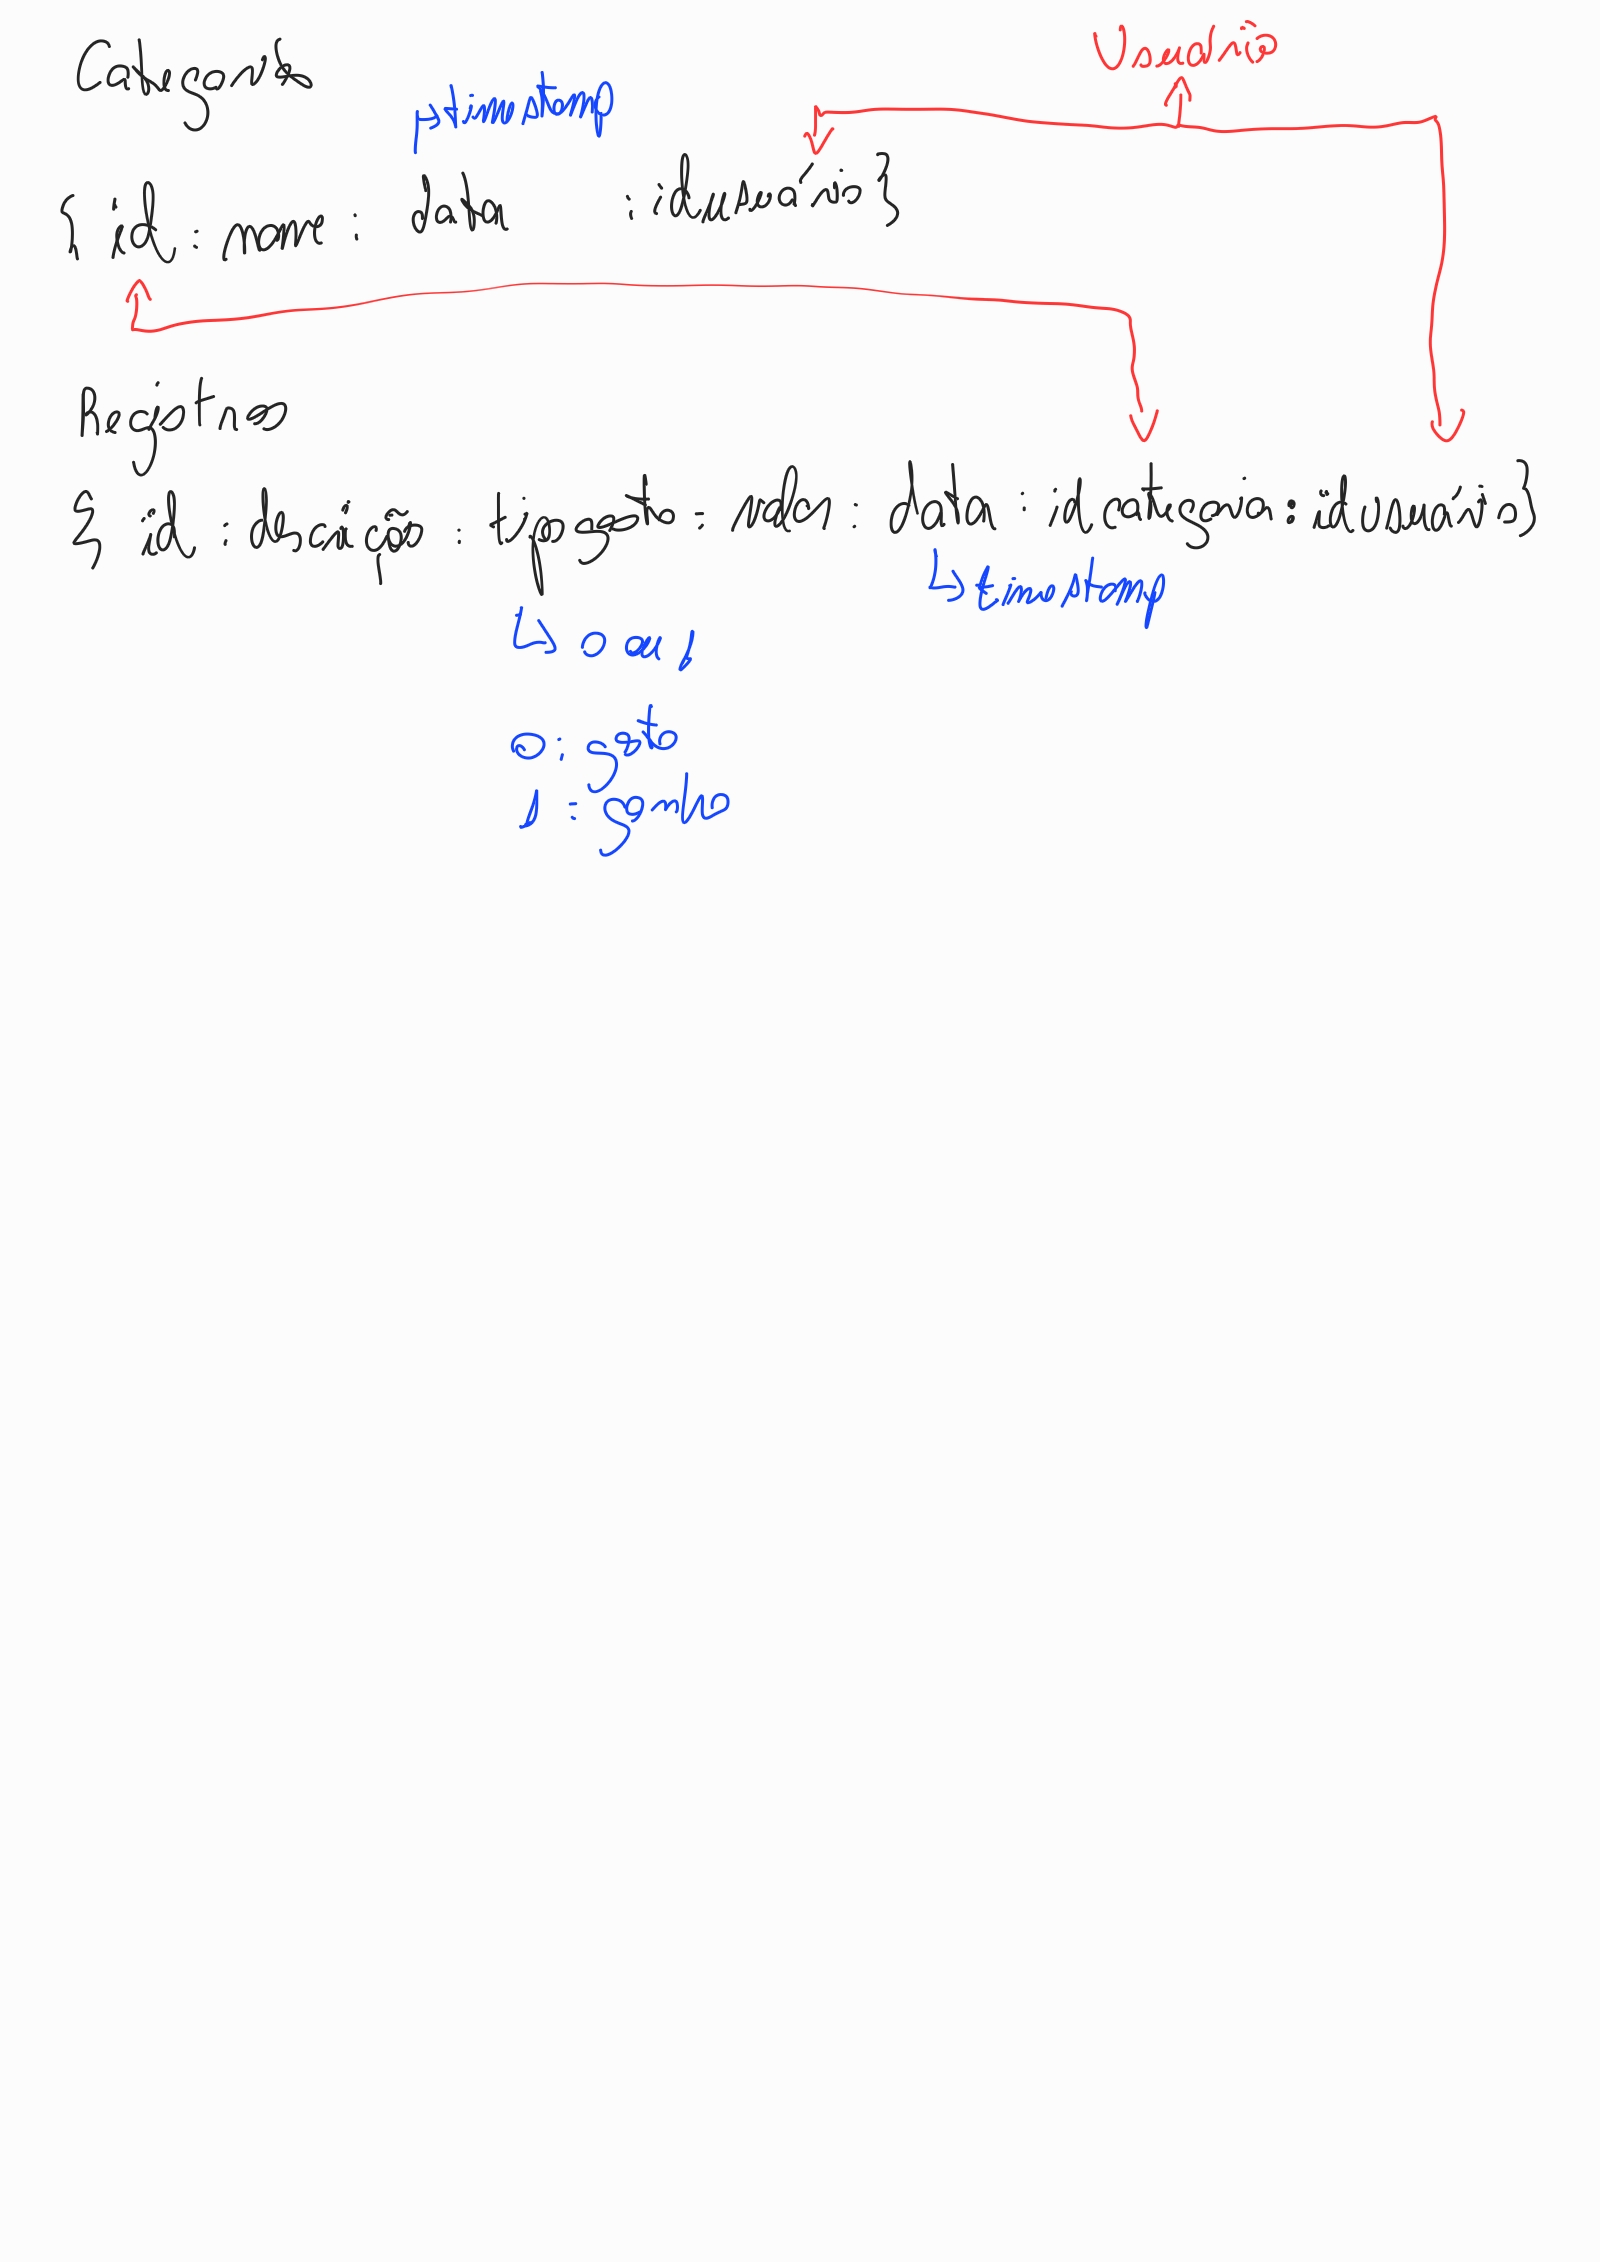 Usuário
Categorias
timestamp
{ id : nome : data : idusuário }
Registros
{ id : descrição : tipogasto : valor : data : idcategoria : idusuário }
timestamp
0 ou 1
0 : gasto
1 : ganho